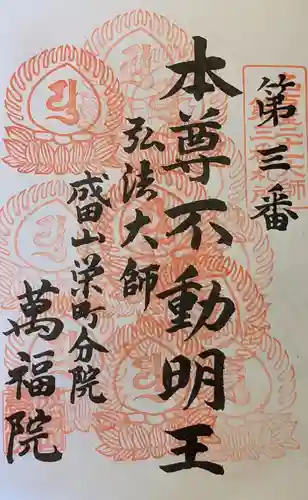 第三番
本尊不動明王
弘法大師
盛田山栄町分院
萬福院